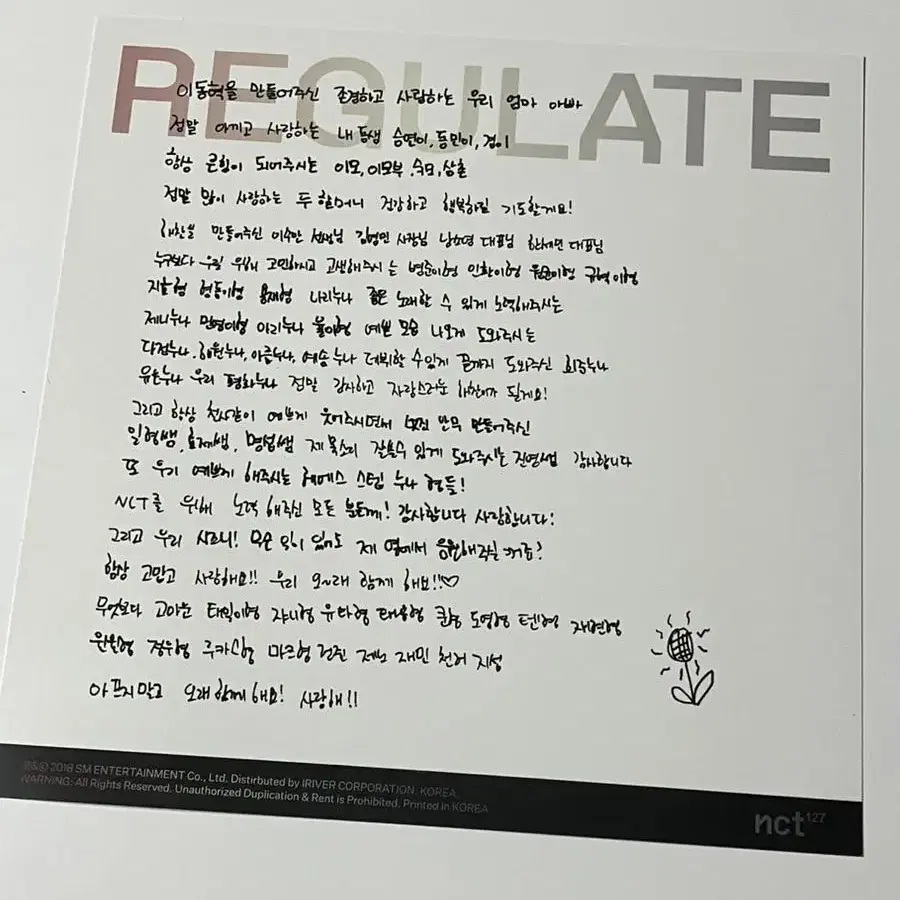 REGULATE
이동혁을 만들어주신 존경하고 사랑하는 우리 엄마 아빠
정말 아끼고 사랑하는 내 동생 승연이, 동민이, 겸이
항상 큰힘이 되어주시는 이모, 이모부, 숙모, 삼촌
정말 많이 사랑하는 두 할머니 건강하고 행복하길 기도할게요!
해찬을 만들어주신 이수만 선생님 김영민 사장님 남소영 대표님 한세민 대표님
누구보다 우릴 위해 고민하시고 고생해주시는 병준이형 인환이형 이형 규혁이형
지호형 형동이형 용재형 나리누나 좋은 노래할 수 있게 노력해주시는
제니누나 민형이형 아리누나 예쁜 모습 나오게 도와주시는
다정누나, 해원누나, 아름누나, 예송누나 데뷔할 수있게 끝까지 도와주신 희주누나
유은누나 우리 평화누나 정말 감사하고 자랑스러운 해찬이가 될게요!
그리고 항상 천사같이 예쁘게 웃어주시면서 멋진 안무 만들어주신
일형쌤, 효재쌤, 명섭쌤 제 목소리 잡을수 있게 도와주시는 진영쌤 감사합니다
또 우리 예쁘게 해주시는 헤메스 스텝 누나 형들!
NCT를 위해 노력해주신 모든 분들께! 감사합니다 사랑합니다!
그리고 우리 시즈니! 무슨 일이 있어도 제 옆에서 응원해주실꺼죠?
항상 고맙고 사랑해요!! 우리 오~래 함께 해요!!♡
무엇보다 고마운 태일이형 쟈니형 유타형 태용형 쿤형 도영형 텐형 재현형
윈윈형 정우형 루카스형 마크형 런쥔 제노 재민 천러 지성
아프지말고 오래 함께해요! 사랑해!!
℗&© 2018 SM ENTERTAINMENT Co., Ltd. Distirbuted by IRIVER CORPORATION. KOREA.
WARNING: All Rights Reserved. Unauthorized Duplication & Rent is Prohibited. Printed in KOREA
nct 127